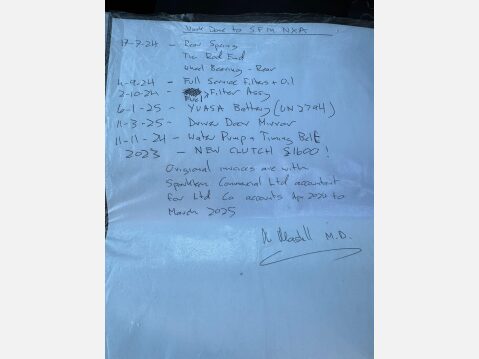 Work Done to SFM NXA
17-7-24 - Rear Spring
Tie Rod End
Wheel Bearing - Rear
4-9-24 - Full Service Filters + Oil
2-10-24 - Fuel Filter Assy
6-1-25 - YUASA Battery (UN2794)
11-3-25 - Driver Door Mirror
11-11-24 - Water Pump + Timing Belt
2023 - NEW CLUTCH £1600!
Origional invoices are with
Commercial Ltd accountant
for Ltd Co accounts Apr 2024 to
March 2025
M.D.